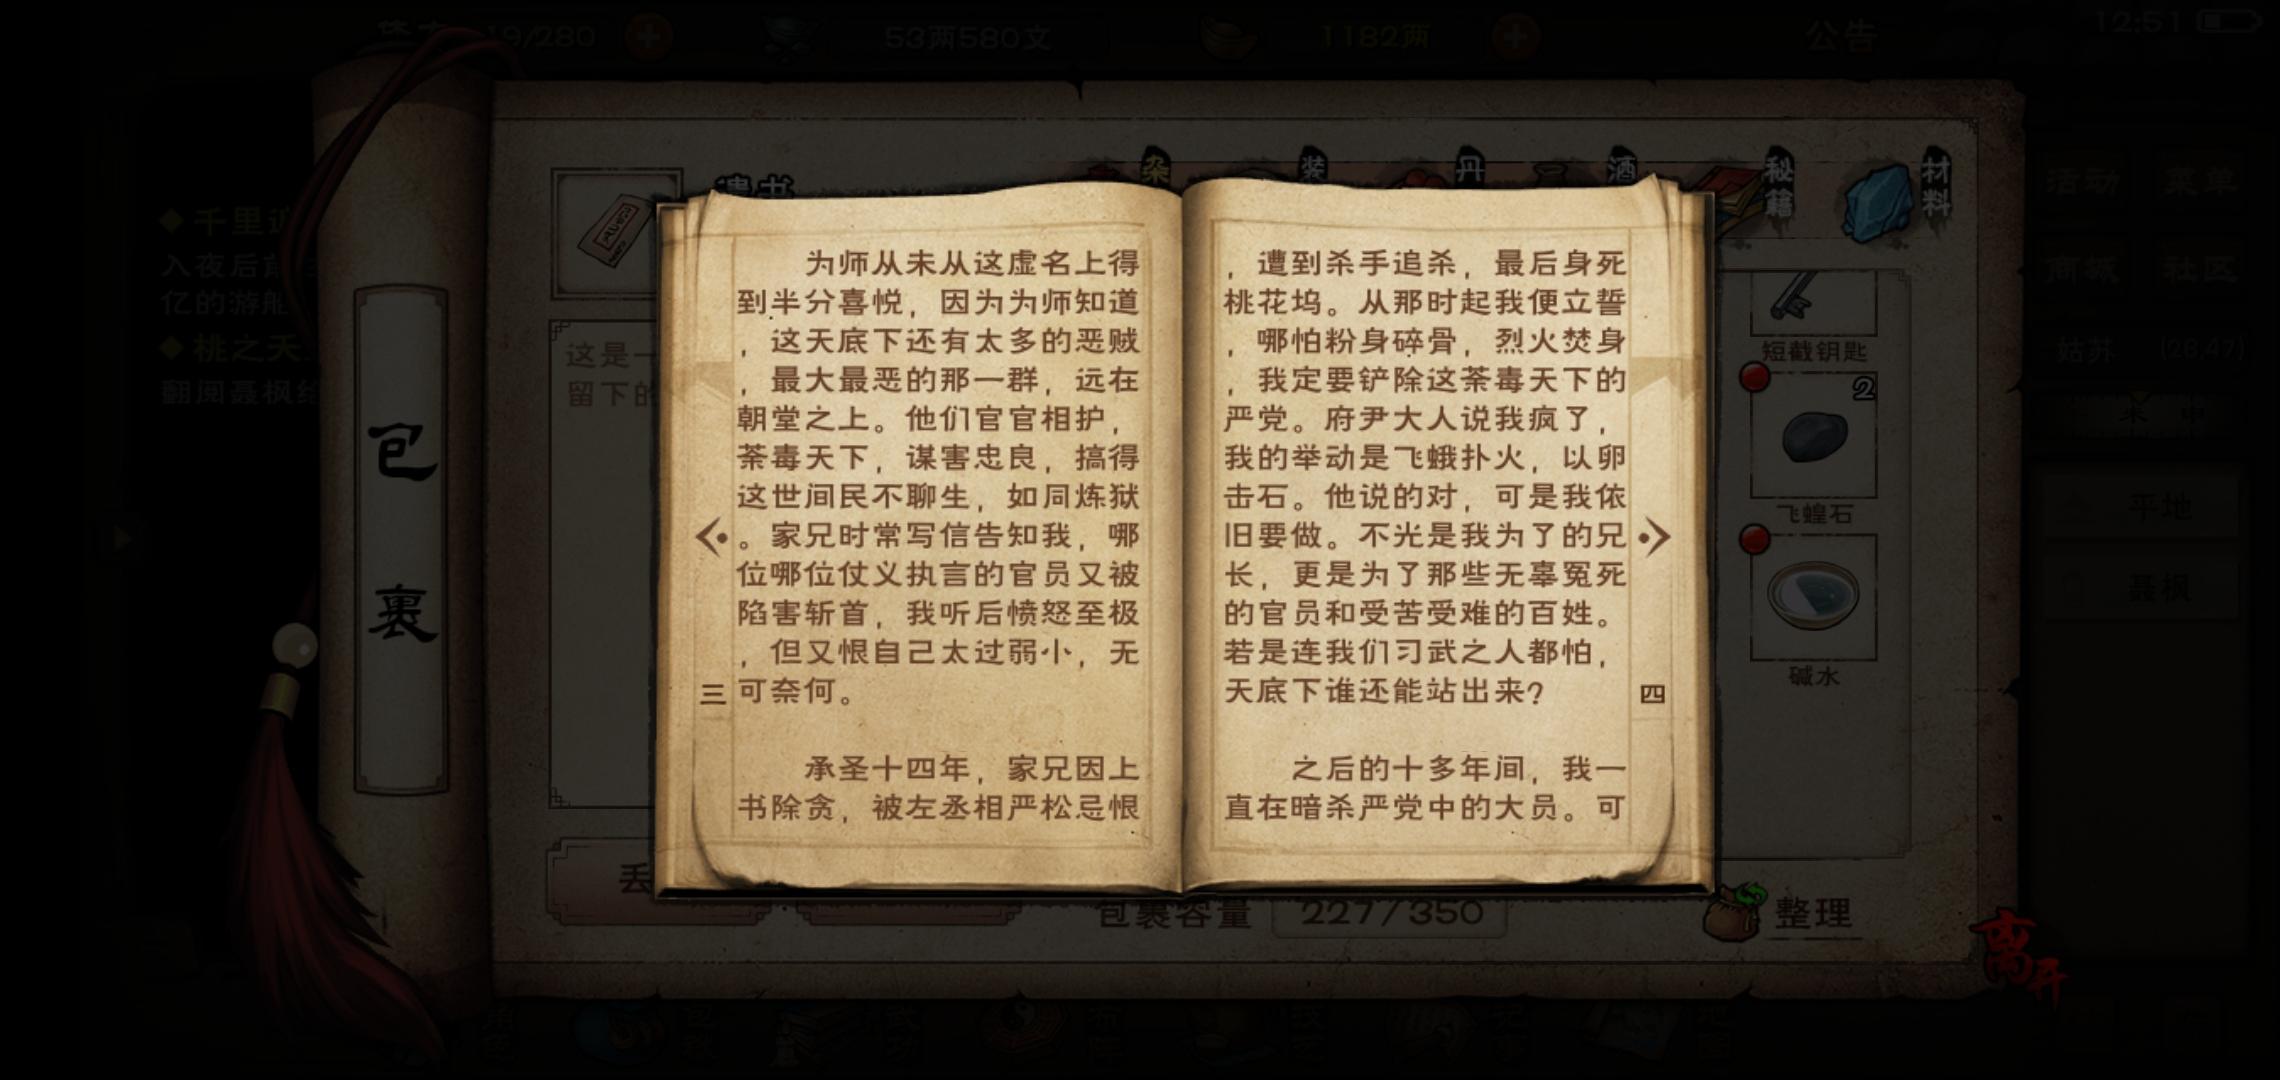 19/280
53两580文
1182两
公告
12:51
杂
装
丹
酒
秘籍
材料
遗书
千里
入夜后
亿的游船
桃之夭
翻阅聂枫给
这是一
留下的
包裹
为师从未从这虚名上得
到半分喜悦，因为为师知道
，这天底下还有太多的恶贼
，最大最恶的那一群，远在
朝堂之上。他们官官相护，
荼毒天下，谋害忠良，搞得
这世间民不聊生，如同炼狱
。家兄时常写信告知我，哪
位哪位仗义执言的官员又被
陷害斩首，我听后愤怒至极
，但又恨自己太过弱小，无
可奈何。
承圣十四年，家兄因上
书除贪，被左丞相严松忌恨
三
，遭到杀手追杀，最后身死
桃花坞。从那时起我便立誓
，哪怕粉身碎骨，烈火焚身
，我定要铲除这荼毒天下的
严党。府尹大人说我疯了，
我的举动是飞蛾扑火，以卵
击石。他说的对，可是我依
旧要做。不光是我为了的兄
长，更是为了那些无辜冤死
的官员和受苦受难的百姓。
若是连我们习武之人都怕，
天底下谁还能站出来？
之后的十多年间，我一
直在暗杀严党中的大员。可
四
短截钥匙
2
飞蝗石
碱水
活动
菜单
商城
社区
姑苏
(28,47)
平地
聂枫
丢
包裹容量
227/350
整理
离开